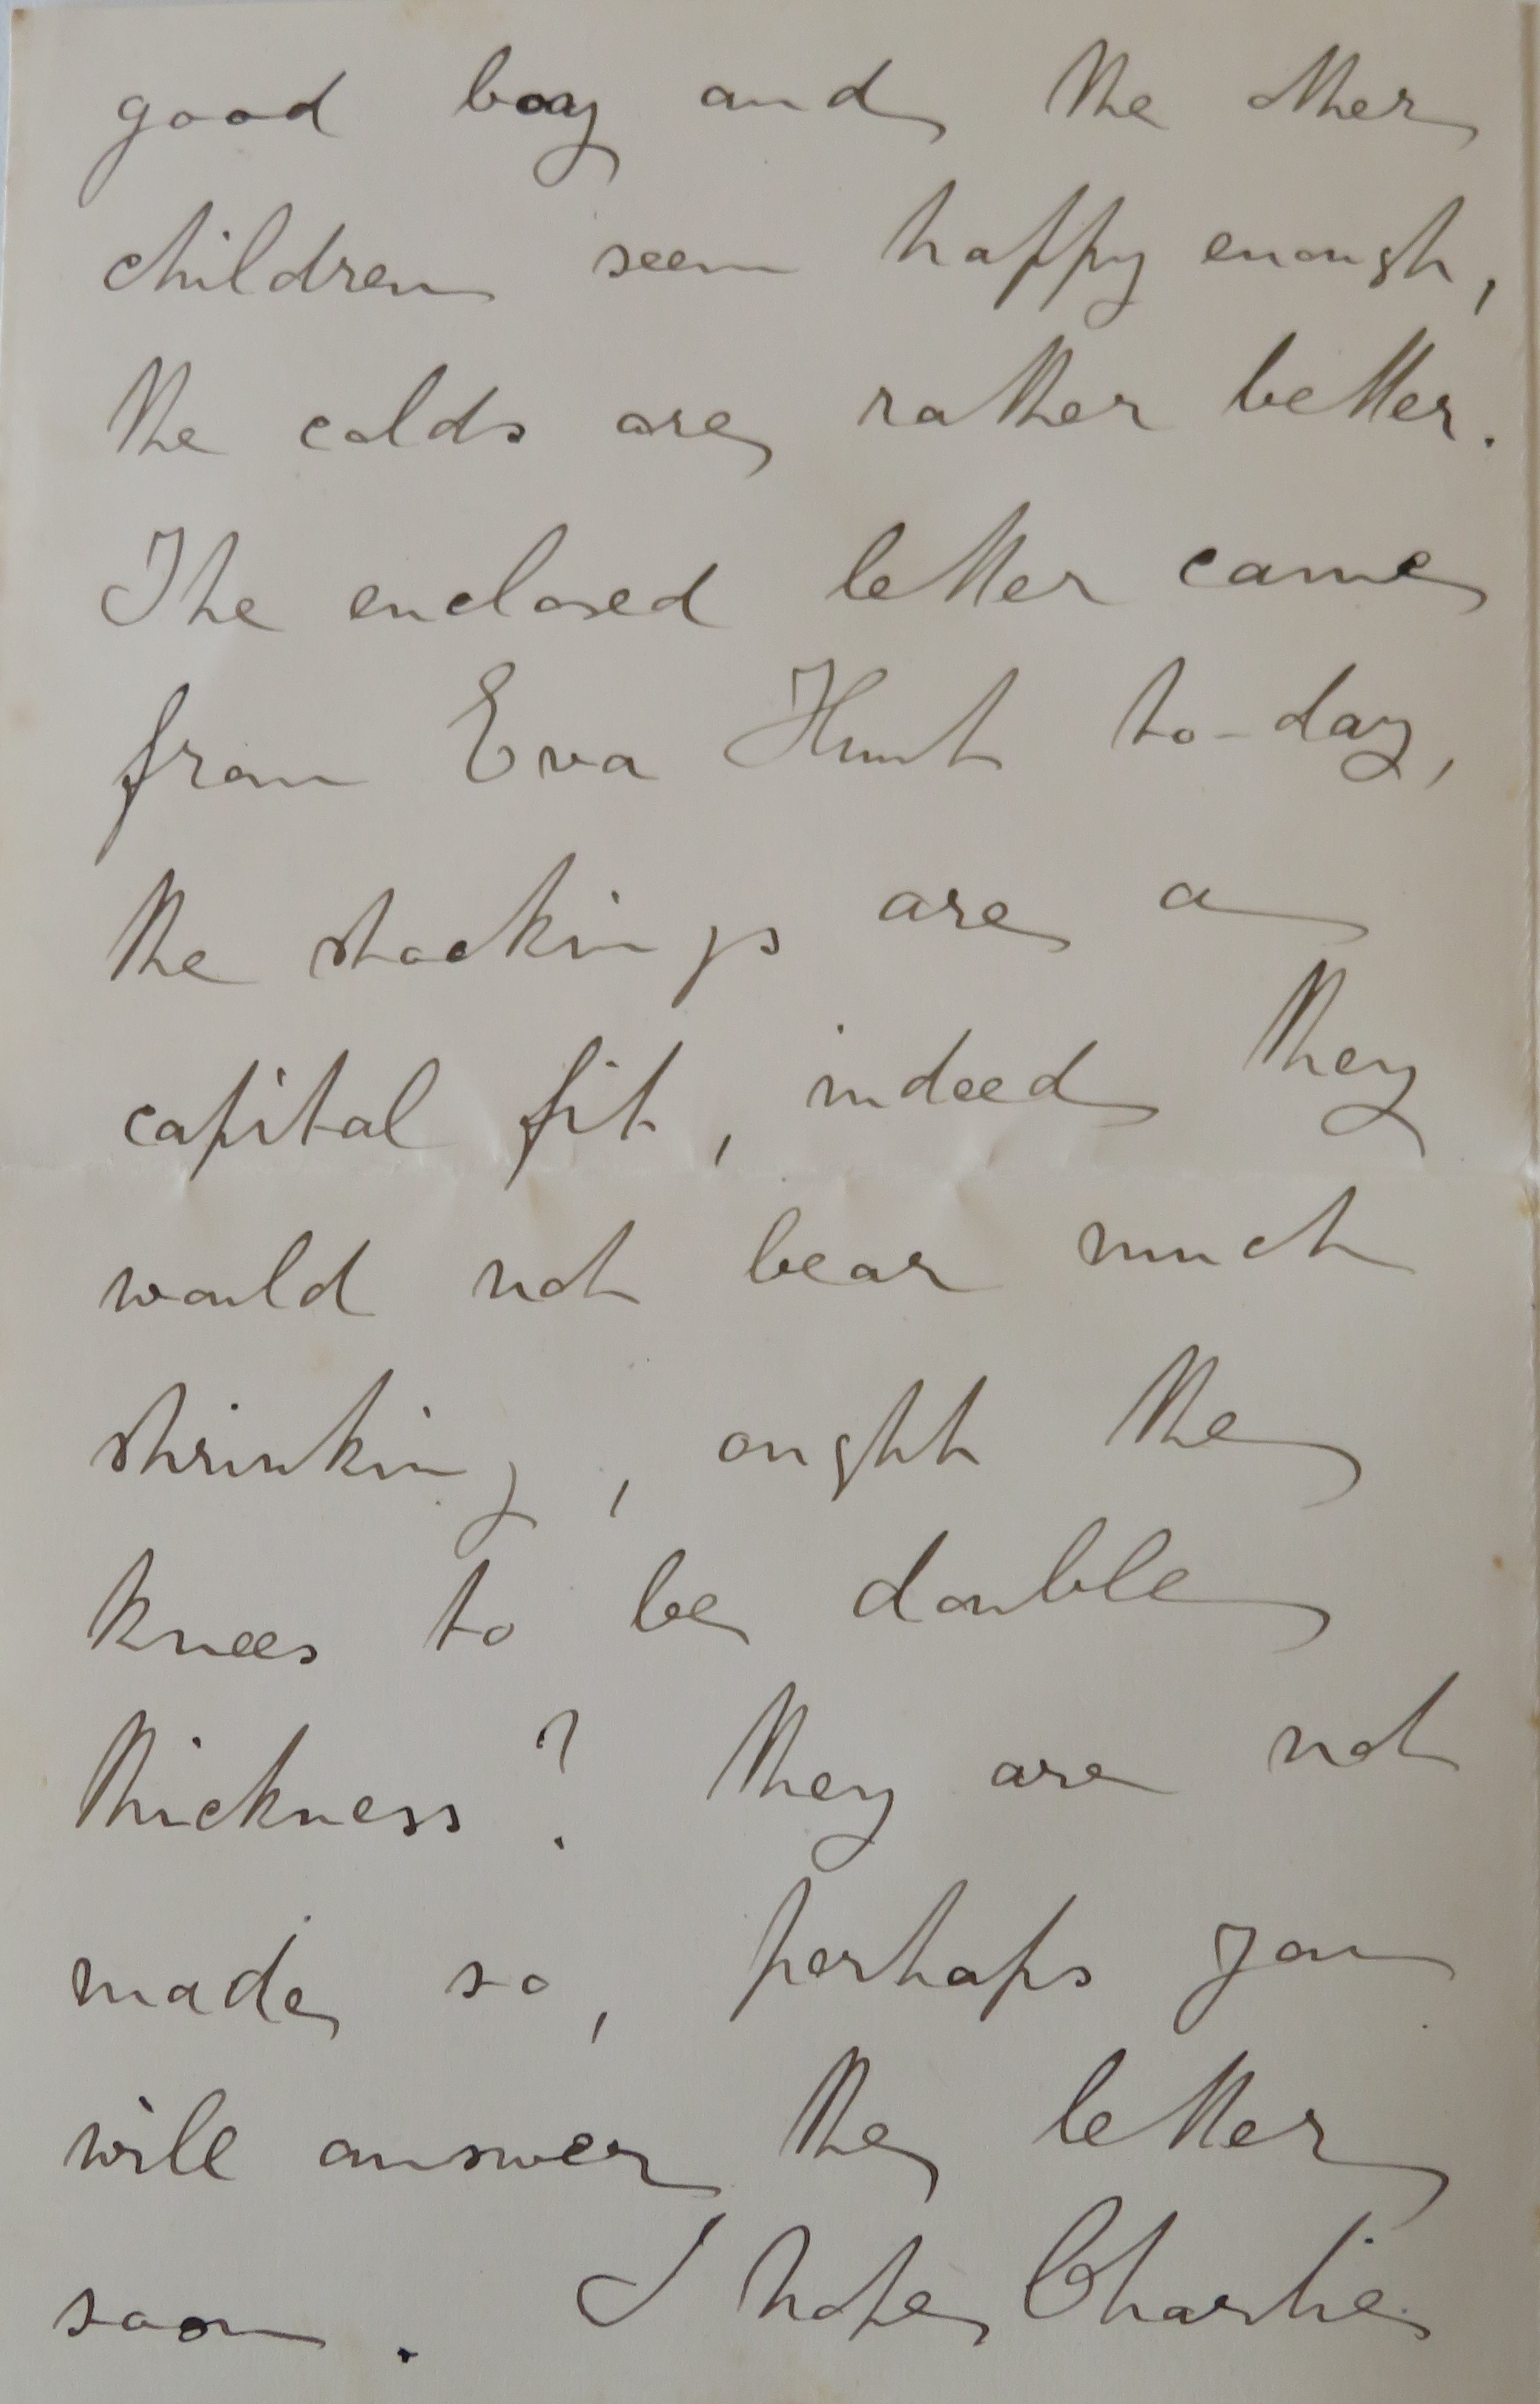 good boy and the other
children seem happy enough,
the colds are rather better.
The enclosed letter came
from Eva Hunt to-day,
the stockings are a
capital fit, indeed they
would not bear much
shrinking, ought the
knees to be double
thickness? they are not
made so, perhaps you
will answer the letter
soon. I hope Charlie